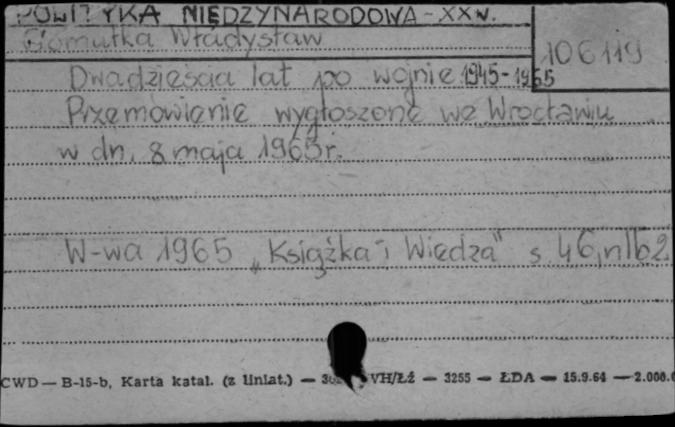 POLITYKA MIĘDZYNARODOWA - XX w.
Gomułka Władysław
106119
Dwadzieścia lat po wojnie 1945-1965
Przemówienie wygłoszone we Wrocławiu
w dn. 8 maja 1965r.
W-wa 1965 „Książka i Wiedza" s. 46, nlb 2
CWD — B-15-b, Karta katal. (z liniat.) — VH/Łź — 3255 — ŁDA — 15.9.64 — 2.000.